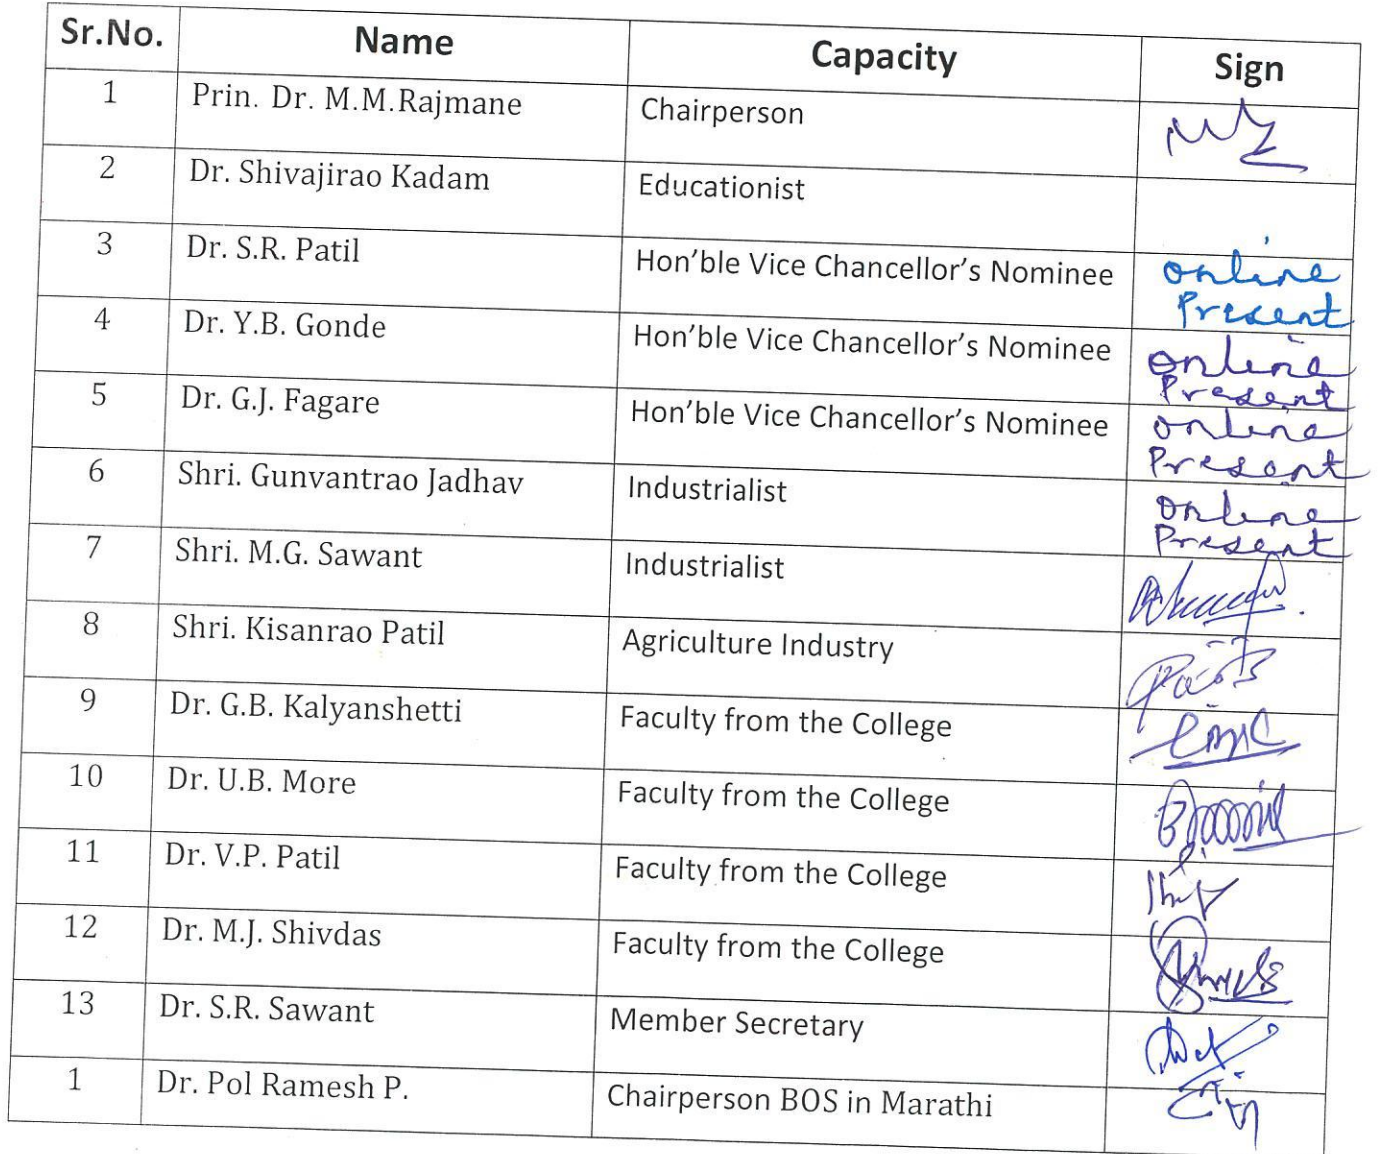 Sr.No. Name Capacity Sign
1 Prin. Dr. M.M.Rajmane Chairperson
2 Dr. Shivajirao Kadam Educationist
3 Dr. S.R. Patil Hon'ble Vice Chancellor's Nominee online
Present
4 Dr. Y.B. Gonde Hon'ble Vice Chancellor's Nominee online
Present
5 Dr. G.J. Fagare Hon'ble Vice Chancellor's Nominee online
Present
6 Shri. Gunvantrao Jadhav Industrialist online
Present
7 Shri. M.G. Sawant Industrialist
8 Shri. Kisanrao Patil Agriculture Industry
9 Dr. G.B. Kalyanshetti Faculty from the College
10 Dr. U.B. More Faculty from the College
11 Dr. V.P. Patil Faculty from the College
12 Dr. M.J. Shivdas Faculty from the College
13 Dr. S.R. Sawant Member Secretary
1 Dr. Pol Ramesh P. Chairperson BOS in Marathi